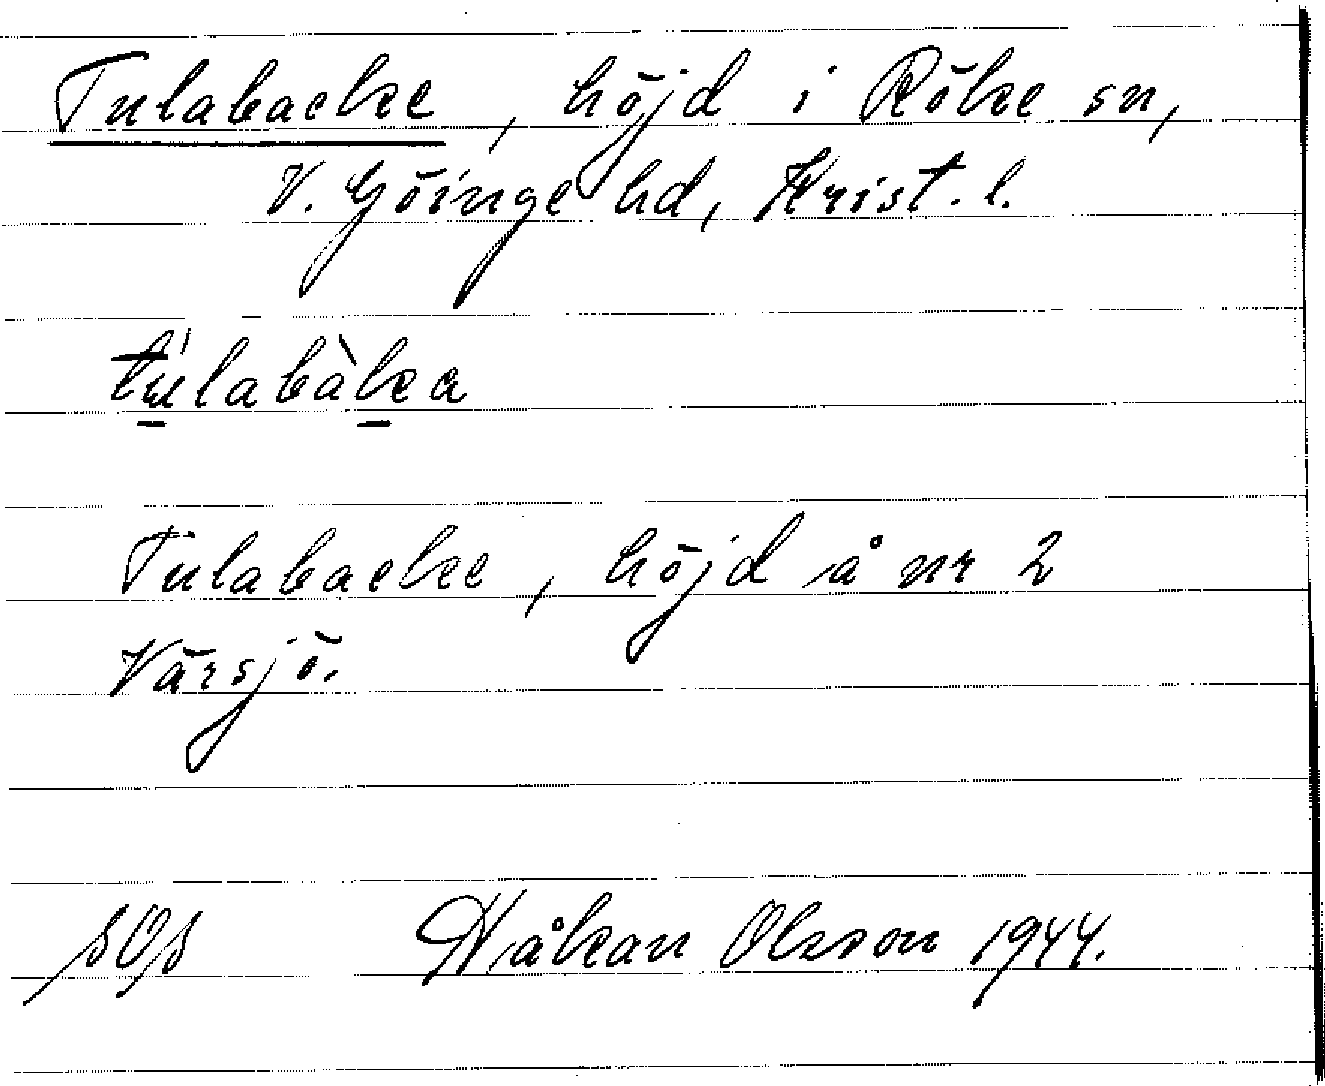 Tulabacke, höjd i Röke sn,
V. Göinge hd, Krist. l.
túlabàka
Tulabacke, höjd å nr 2
Värsjö.
Håkan Olsson 1944.